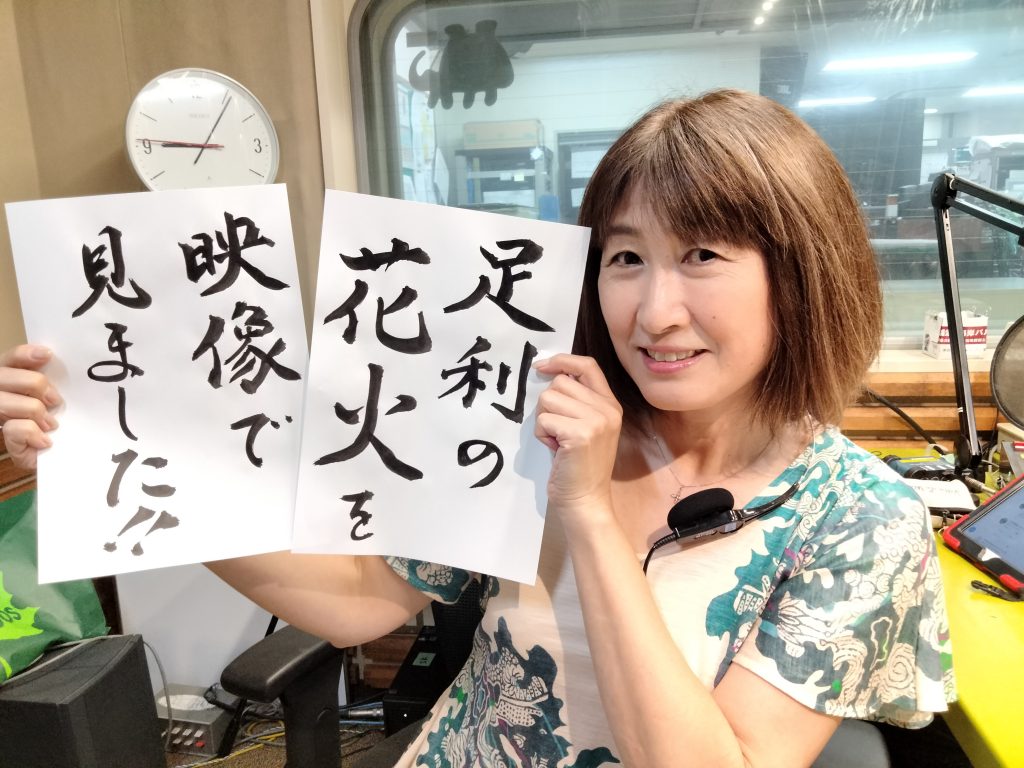 足利の
花火を
映像で
見ました!!
SEIKO
9
3